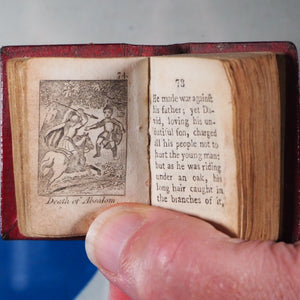 74
Death of Absalom
78
He made war against
his father; yet Da-
vid, loving his un-
dutiful son, charged
all his people not to
hurt the young man;
but as he was riding
under an oak, his
long hair caught in
the branches of it,